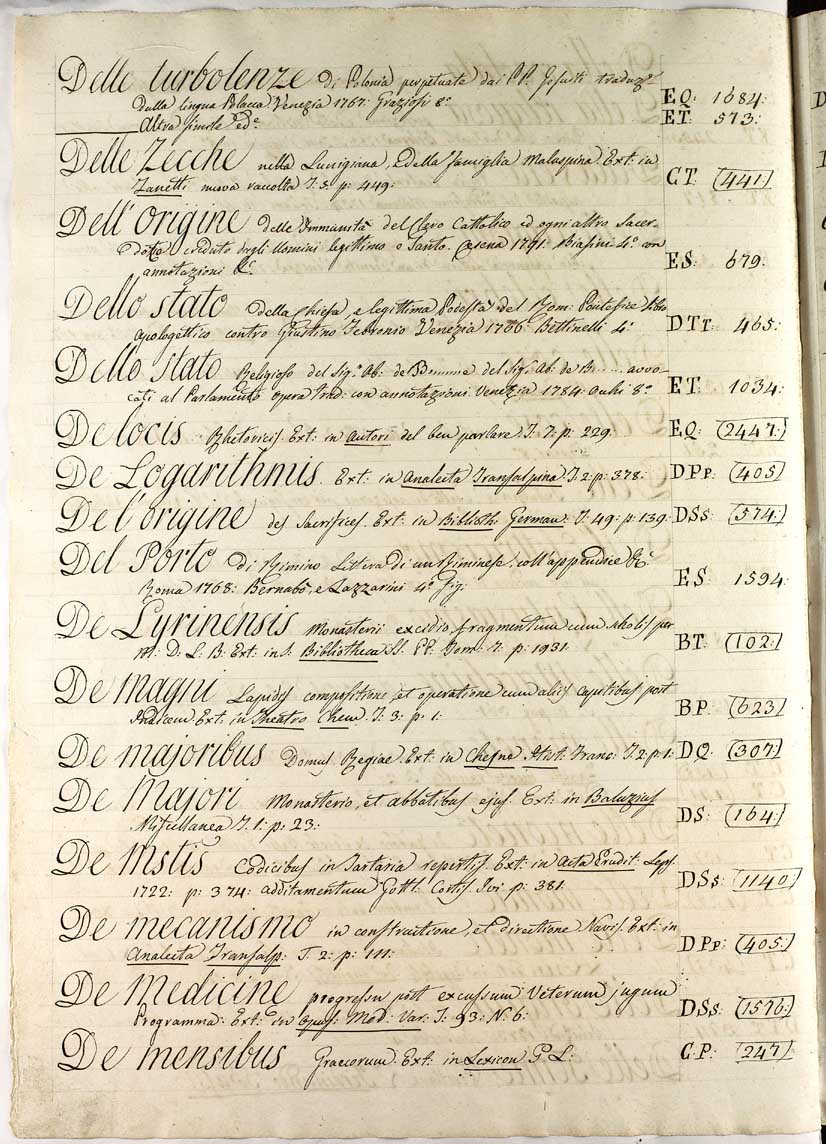 Delle turbolenze di Polonia perpetuate dai PP. Gesuiti traduz.e
dalla lingua Polacca. Venezia 1767: Graziosi 8.o EQ: 1684:
Altra simile ed.e ET: 573:
Delle Zecche nella Lunigiana, della famiglia Malaspina. Ext: in
Zanetti nuova raccolta T: 3: p: 449: CT: (441)
Dell'origine delle Immunità del Clero Cattolico ed ogni altro Sacer-
dotto creduto dagli Uomini legittimo e Santo. Cesena 1791: Biasini 4.o con
annotazioni &c ES: 679:
Dello stato della Chiesa, e legittima Podestà del Rom: Pontefice libro
apologettico contro Giustino Febronio Venezia 1766: Bettinelli 4.o DTt: 465:
Dello stato Religioso del Sig.r Ab: de B del Sig.r Ab: de B..... avvo-
cati al Parlamento opera trad: con annotazioni Venezia 1784: 8.o ET: 1034:
De locis Rhetoricis. Ext: in Autori del ben parlare. T: 7: p: 229: EQ: (2447:)
De Logarithmis. Ext: in Analecta Transalpina. T: 2: p: 378: DPp: (405)
De l'origine des Sacrifices. Ext: in Biblioth: German: T: 49: p: 139: DSs: (574:)
Del Porto di Rimino Lettera di un Riminese, coll'appendice &c
Roma 1768: Bernabò, e Lazzarini 4.o fig: ES: 1594:
De Lyrinensis Monasterii excidio, fragmentum cum scholis per
M: D: L: B: Ext: in S: Bibliotheca SS. PP. Tom: 7: p: 1931: BT: (102:)
De magni Lapidis compositione, et operatione cum aliis capitibus post
Indicem Ext: in Theatro Chem: T: 3: p: 1: BP: (623)
De majoribus Domus Regiae. Ext: in Chesne Hist: Franc: T: 2: p: 1: DQ: (307:)
De Majori Monasterio, et abbatibus ejus. Ext: in Baluzius
Miscellanea T: 1: p: 23: DS: (164:)
De Mstis Codicibus in Tartaria repertis. Ext: in Acta Erudit: Lips:
1722: p: 374: additamentum Gottl: Cortis Ivi p: 381. DSs: (1140:)
De mecanismo in constructione, et directione Navis. Ext: in
Analecta Transalp: T: 2: p: 111: DPp: (405:)
De Medicine progressu post excussum Veterum jugum
Programma. Ext: in Opus: Med: Var: T: 93: N: 6: DSs: (1576:)
De mensibus Graecorum. Ext: in Lexicon G L: CP: (247)